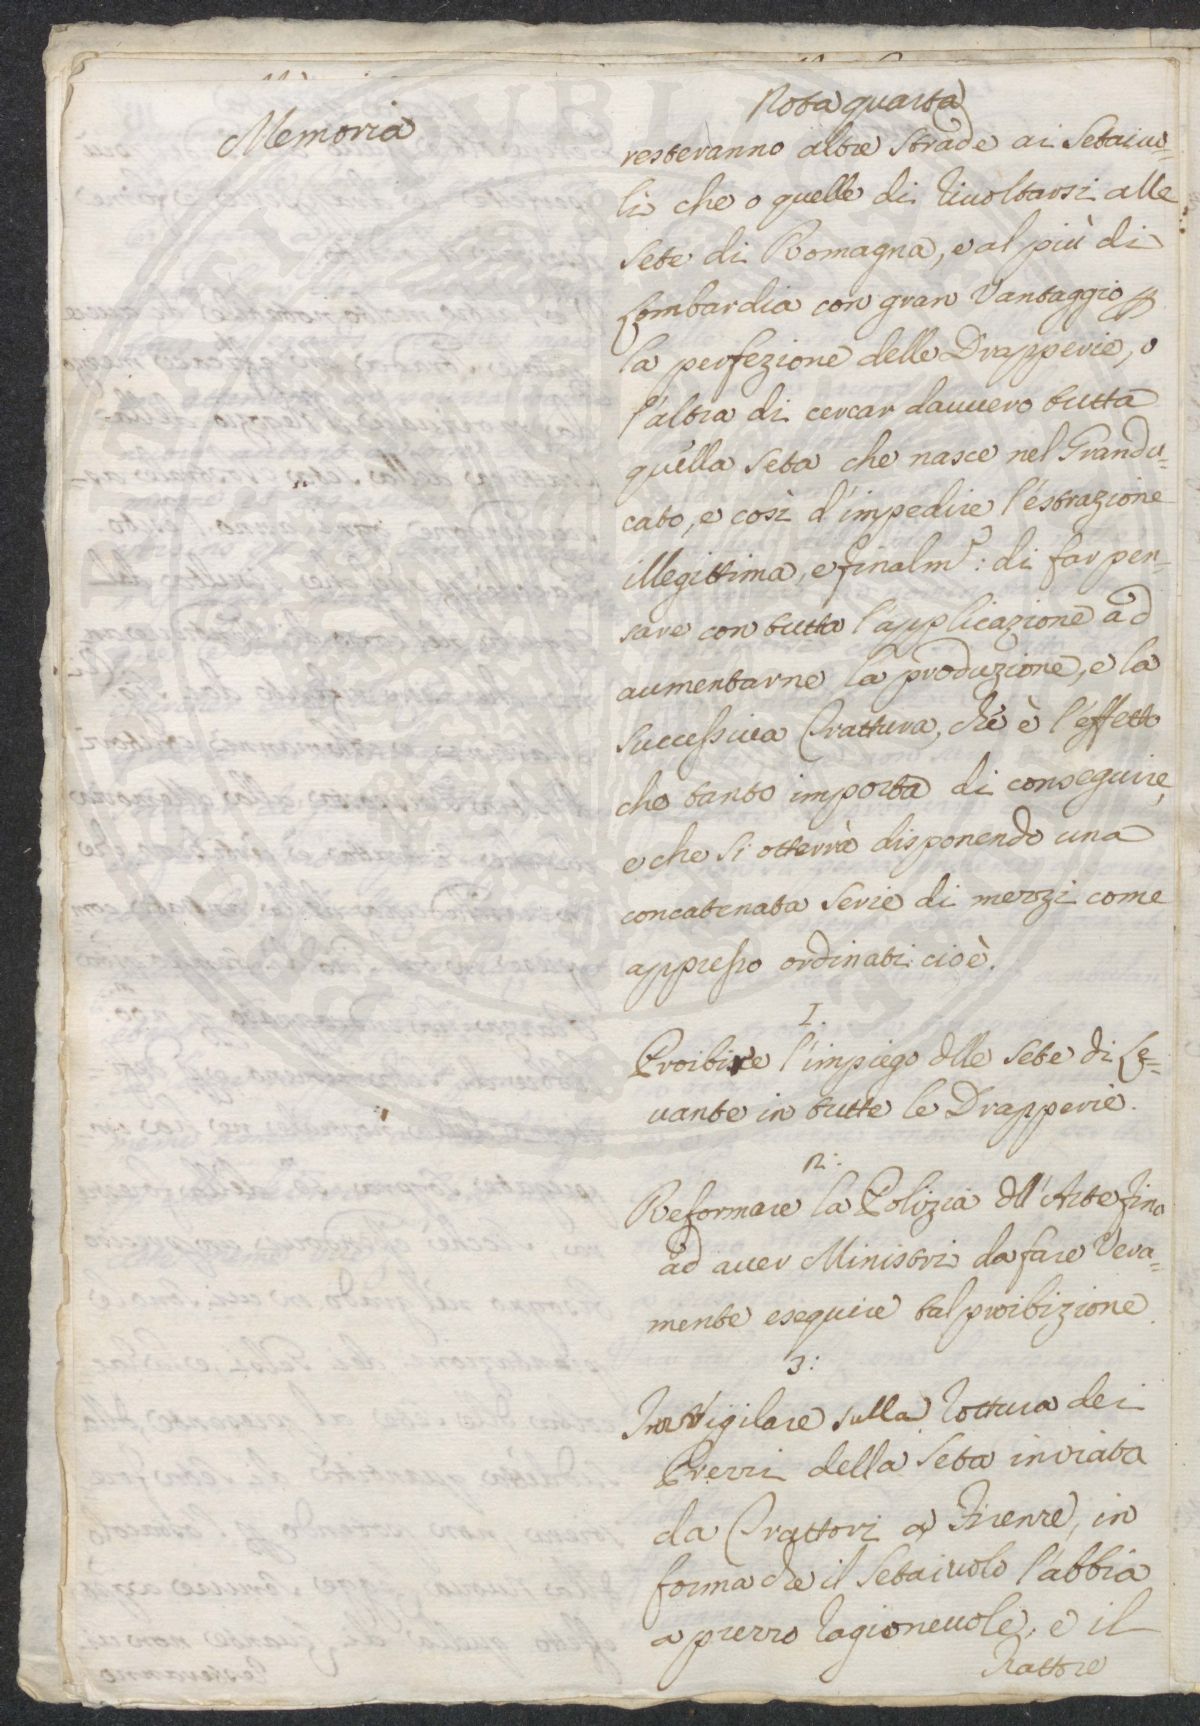 Memoria
Nota quarta
resteranno altre strade ai Setaiuo=
li che o quelle di rivoltarsi alle
Sete di Romagna, e al più di
Lombardia con gran Vantaggio p
la perfezione delle Drapperie, o
l'altra di cercar davvero tutta
quella Seta che nasce nel Grandu=
cato, e così d'impedire l'estrazione
illegittima, e finalm.e: di far pen=
sare con tutta l'applicazione ad
aumentarne la produzione, e la
successiva Trattura, che è l'effetto
che tanto importa di conseguire,
e che si otterrà disponendo una
concatenata Serie di mezzi come
appresso ordinati cioè.
I.
Proibire l'impiego dlle Sete di Le=
vante in tutte le Drapperie.
2:
Reformare la Polizia dll'Arte fino
ad aver Ministri da fare Vera=
mente eseguire tal proibizione.
3:
Invigilare sulla rottura dei
Prezzi della Seta inviata
da Trattori a Firenze, in
forma che il Setaiuolo l'abbia
a prezzo ragionevole, e il
Trattore